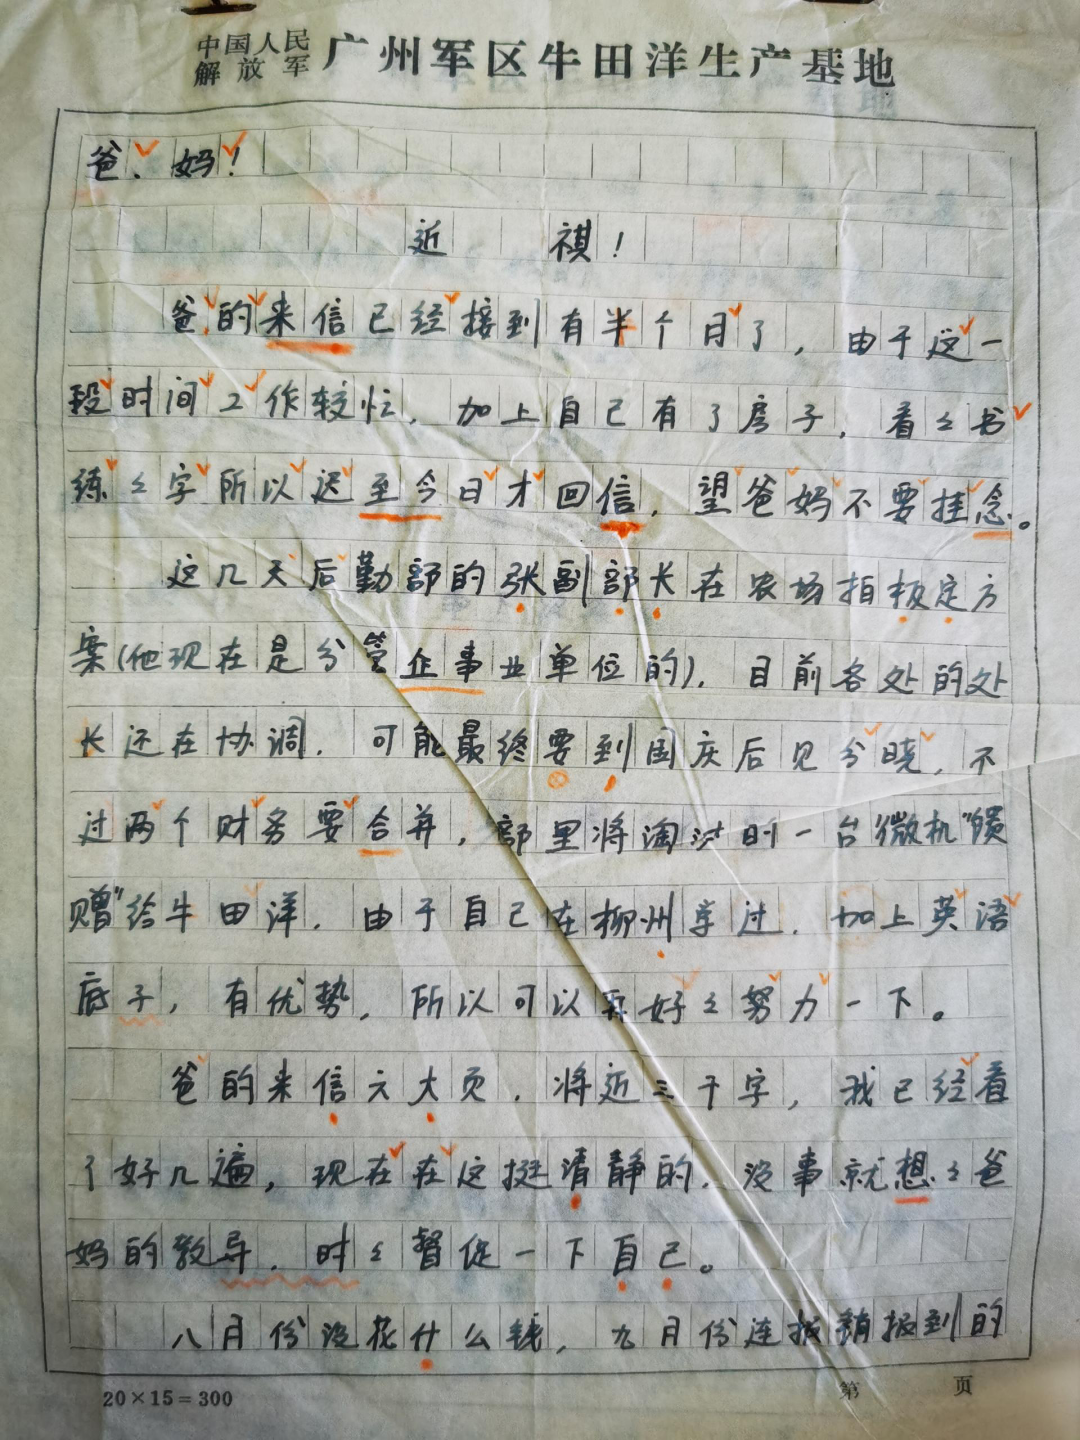 中国人民
解放军
广州军区牛田洋生产基地
爸、妈！
近 祺！
爸的来信已经接到有半个月了，由于这一
段时间工作较忙，加上自己有了房子，看々书
练々字所以迟至今日才回信，望爸妈不要挂念。
这几天后勤部的张副部长在农场拍板定方
案（他现在是分管企事业单位的），目前各处的处
长还在协调，可能最终要到国庆后见分晓，不
过两个财务要合并，部里将淘汰的一台微机"馈
赠"给牛田洋，由于自己在柳州学过，加上英语
底子，有优势，所以可以再好々努力一下。
爸的来信六大页，将近三千字，我已经看
了好几遍，现在在这挺清静的，没事就想々爸
妈的教导，时々督促一下自己。
八月份没花什么钱，九月份连报销报到的
20×15=300
第 页